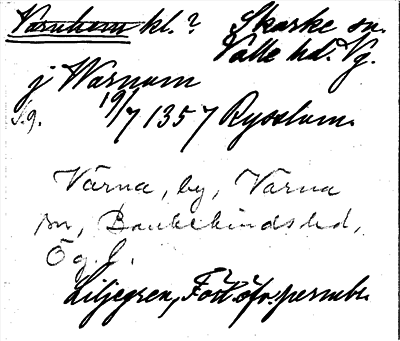 Varnhem kl.? Skarke sn.
Valle hd. Vg.
j Warnum
19/7 1357 Rysslum.
Vårna, by, Vårna
sn, Bankekindshd,
Ög.
Liljegren, Fört. öfv. permbr.